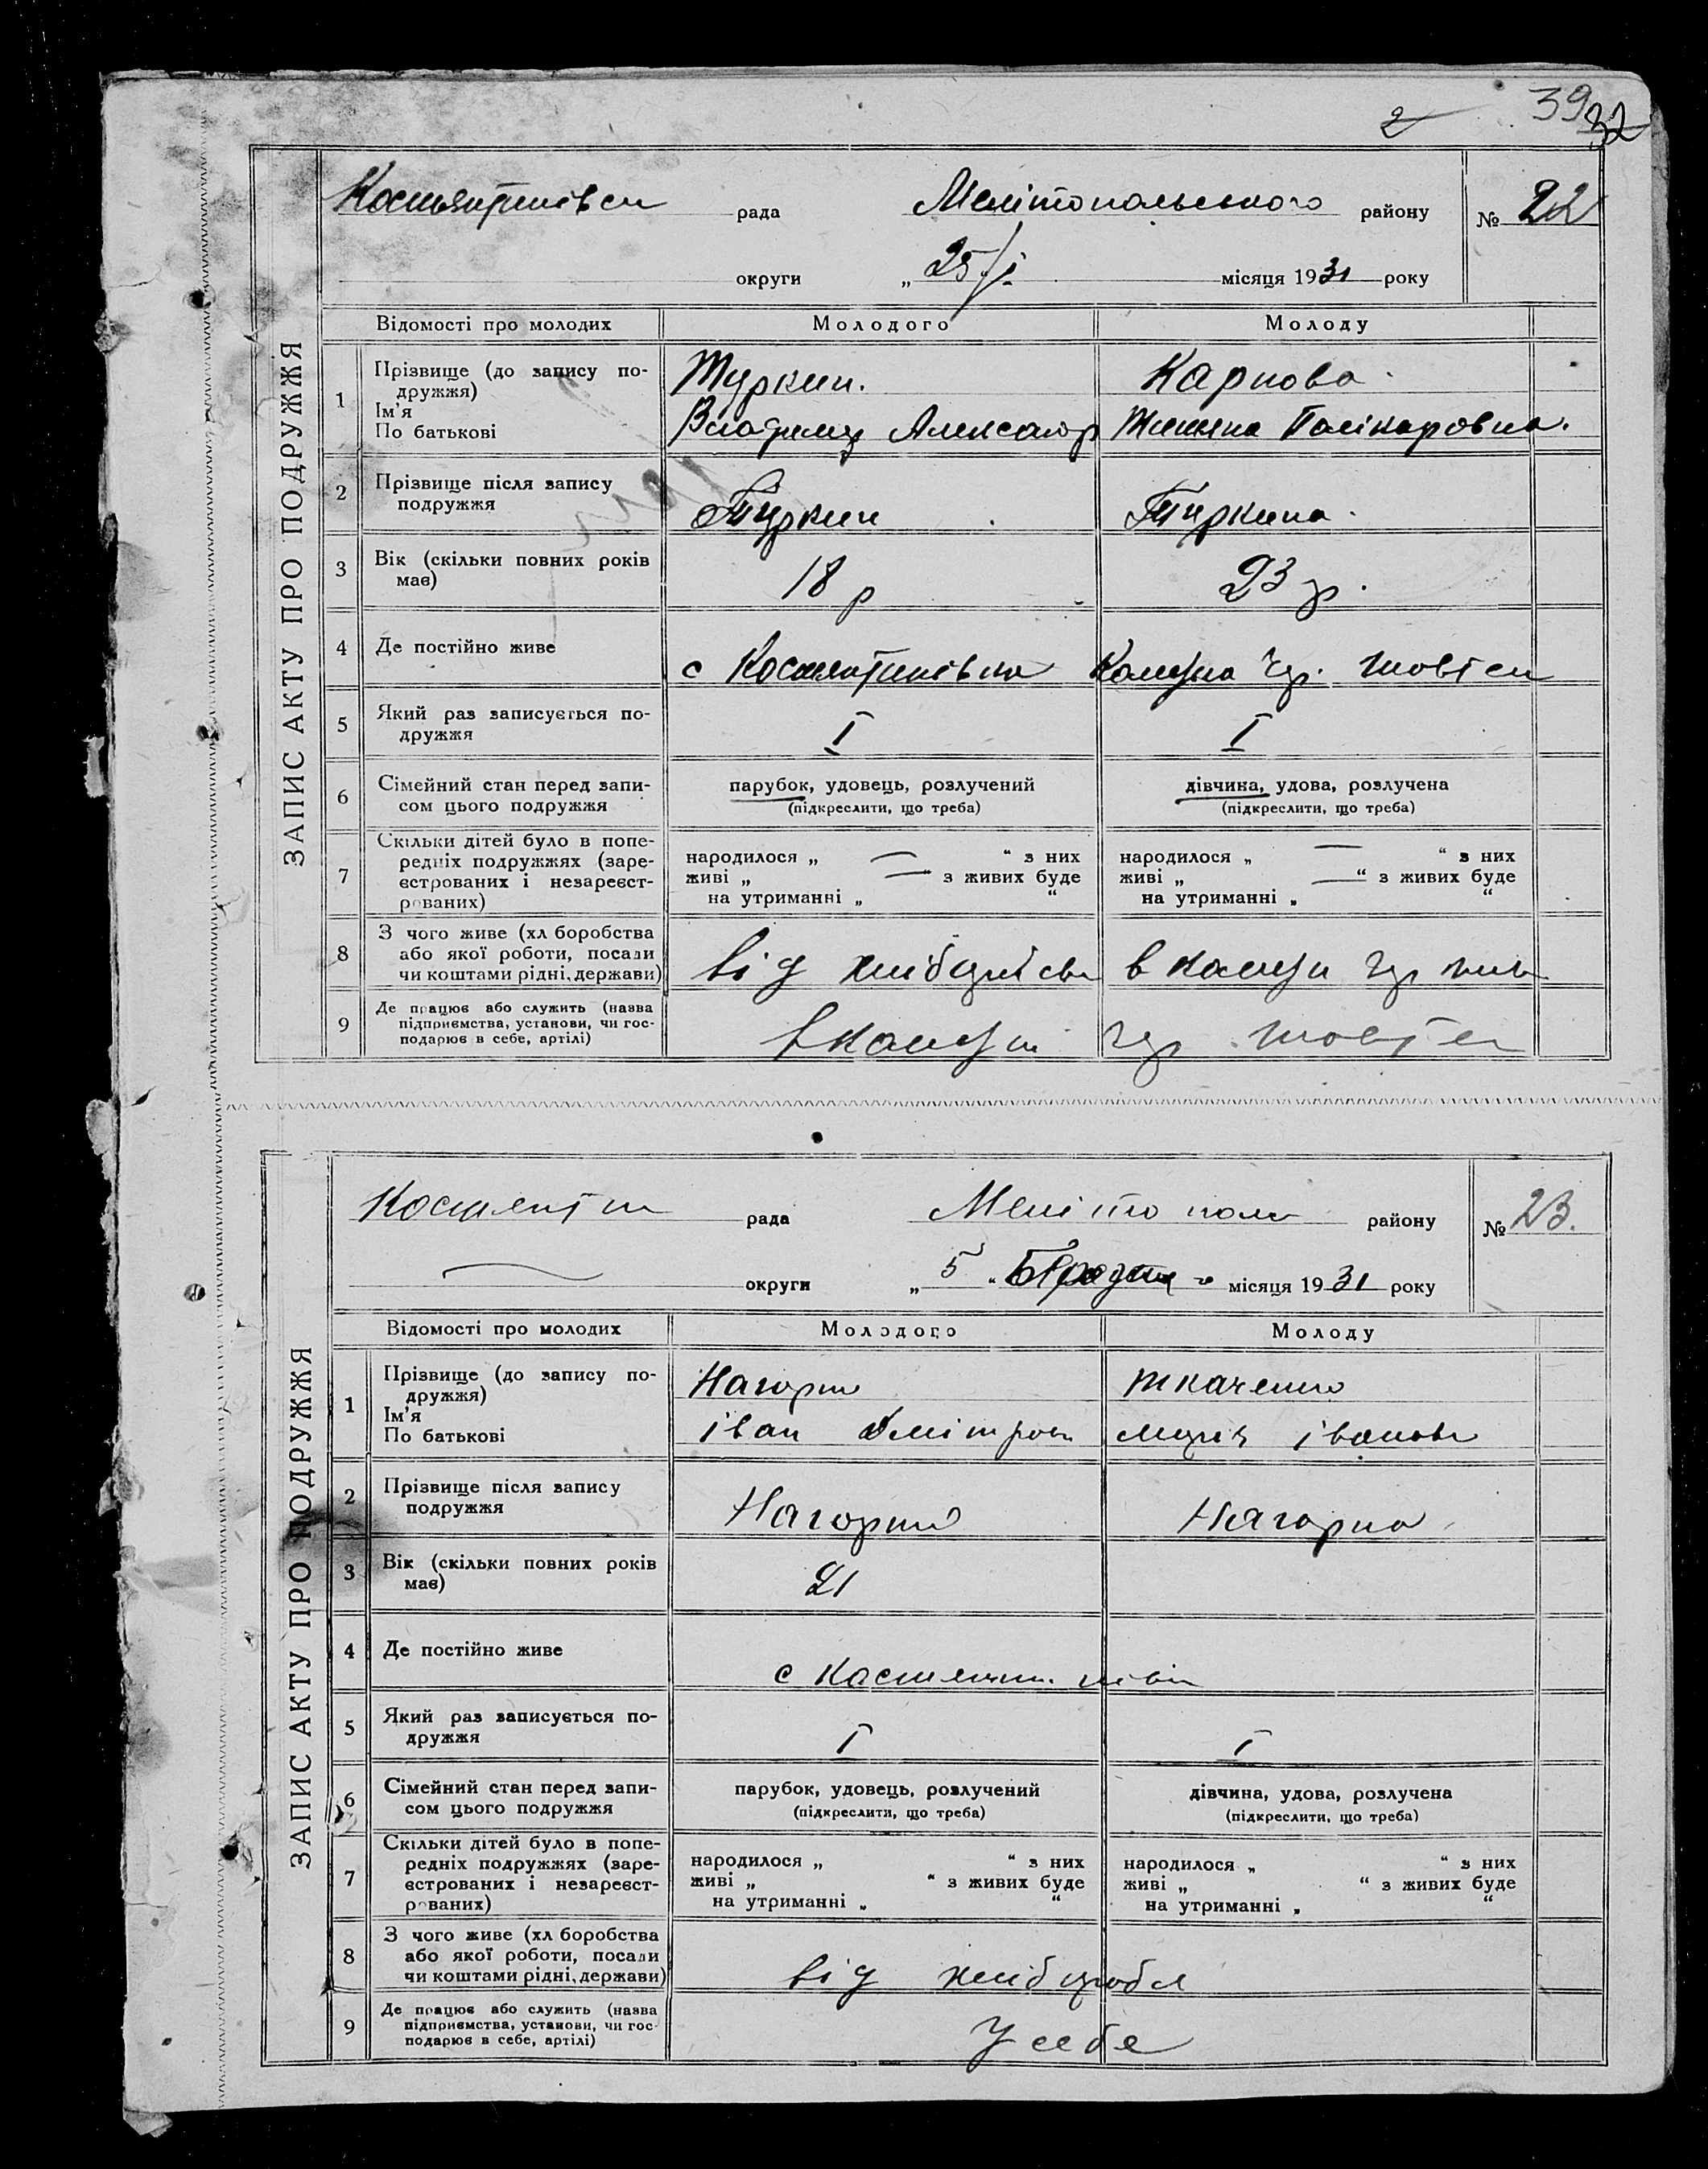 2 39 32
ЗАПИС АКТУ ПРО ПОДРУЖЖЯ
Костянтинівсн рада Мелітопольського району № 22
округи „ 25/I місяця 1931 року
Відомості про молодих Молодого Молоду
1 Прізвище (до запису по-
дружжя)
Ім'я
По батькові
Туркин. Карпова
Владимір Александр
2 Прізвище після запису
подружжя
Туркин Туркина
3 Вік (скільки повних років
має)
18 р 23 р.
4 Де постійно живе
с Костянтинівка Комуна Чер. Жовтен
5 Який раз записується по-
дружжя
I I
6 Сімейний стан перед запи-
сом цього подружжя
парубок, удовець, розлучений дівчина, удова, розлучена
(підкреслити, що треба) (підкреслити, що треба)
7 Скільки дітей було в попе-
редніх подружжях (заре-
єстрованих і незареєст-
рованих)
народилося „ — “ з них народилося „ — “ з них
живі „ — “ з живих буде живі „ — “ з живих буде
на утриманні „ “ на утриманні „ “
8 З чого живе (хл боробства
або якої роботи, посади
чи коштами рідні, держави)
від в комуни
9 Де працює або служить (назва
підприємства, установи, чи гос-
подарює в себе, артілі)
в комуні Чер Жовтен
ЗАПИС АКТУ ПРО ПОДРУЖЖЯ
Костянтин рада Мелітопол району № 23.
— округи „ 5 “ місяця 1931 року
Відомості про молодих Молодого Молоду
1 Прізвище (до запису по-
дружжя)
Ім'я
По батькові
Нагорни Ткаченко
Іван Дмітров Марія Іванов
2 Прізвище після запису
подружжя
Нагорний Нагорна
3 Вік (скільки повних років
має)
21
4 Де постійно живе
с Костянтинівк
5 Який раз записується по-
дружжя
I I
6 Сімейний стан перед запи-
сом цього подружжя
парубок, удовець, розлучений дівчина, удова, розлучена
(підкреслити, що треба) (підкреслити, що треба)
7 Скільки дітей було в попе-
редніх подружжях (заре-
єстрованих і незареєст-
рованих)
народилося „ “ з них народилося „ “ з них
живі „ “ з живих буде живі „ “ з живих буде
на утриманні „ “ на утриманні „ “
8 З чого живе (хл боробства
або якої роботи, посади
чи коштами рідні, держави)
від хлібороб
9 Де працює або служить (назва
підприємства, установи, чи гос-
подарює в себе, артілі)
У себе